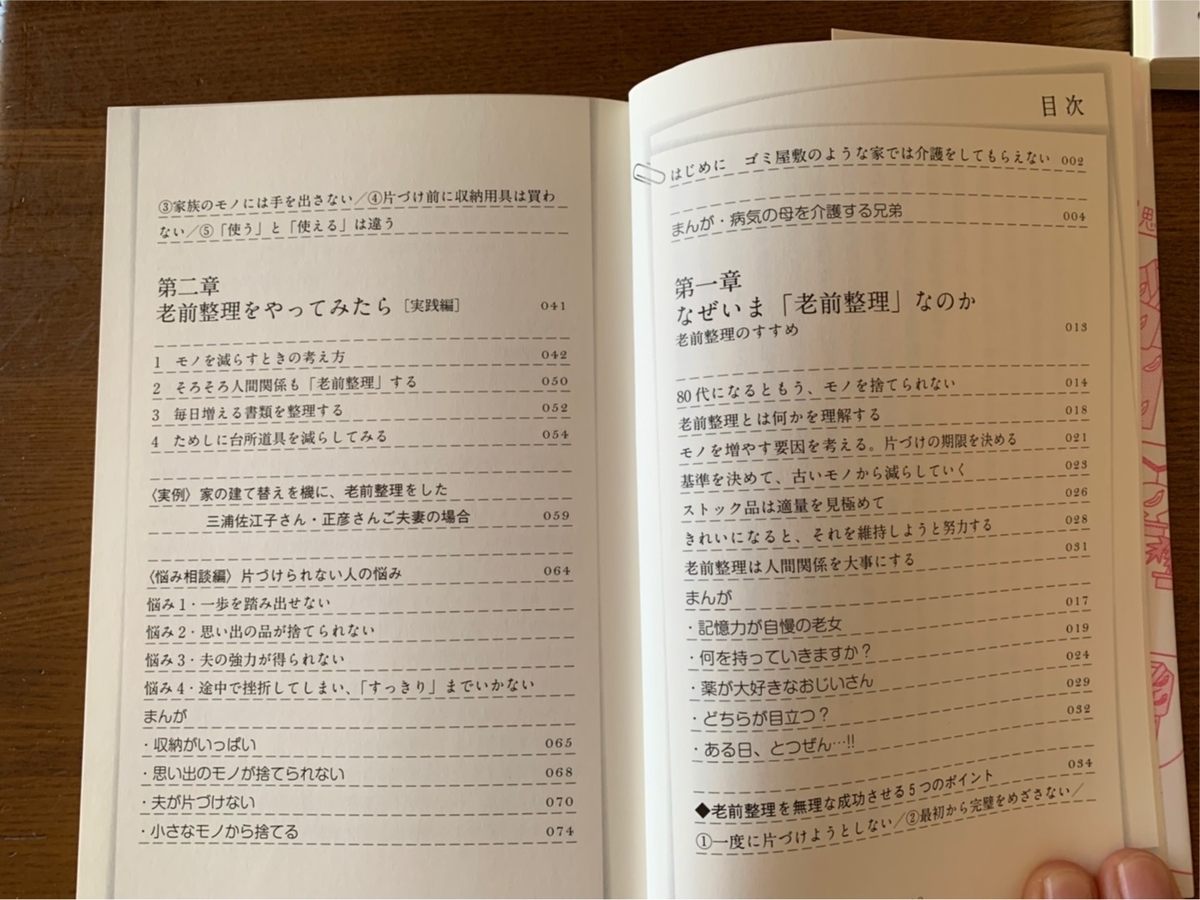 目次
はじめに　ゴミ屋敷のような家では介護をしてもらえない 002
まんが・病気の母を介護する兄弟 004
第一章
なぜいま「老前整理」なのか
老前整理のすすめ 013
80代になるともう、モノを捨てられない 014
老前整理とは何かを理解する 018
モノを増やす要因を考える。片づけの期限を決める 021
基準を決めて、古いモノから減らしていく 023
ストック品は適量を見極めて 026
きれいになると、それを維持しようと努力する 028
老前整理は人間関係を大事にする 031
まんが
・記憶力が自慢の老女 017
・何を持っていきますか？ 019
・薬が大好きなおじいさん 024
・どちらが目立つ？ 029
・ある日、とつぜん…!! 032
◆老前整理を無理な成功させる5つのポイント 034
①一度に片づけようとしない／②最初から完璧をめざさない／
③家族のモノには手を出さない／④片づけ前に収納用具は買わ
ない／⑤「使う」と「使える」は違う
第二章
老前整理をやってみたら［実践編］ 041
1　モノを減らすときの考え方 042
2　そろそろ人間関係も「老前整理」する 050
3　毎日増える書類を整理する 052
4　ためしに台所道具を減らしてみる 054
〈実例〉家の建て替えを機に、老前整理をした
三浦佐江子さん・正彦さんご夫妻の場合 059
〈悩み相談編〉片づけられない人の悩み 064
悩み1・一歩を踏み出せない
悩み2・思い出の品が捨てられない
悩み3・夫の強力が得られない
悩み4・途中で挫折してしまい、「すっきり」までいかない
まんが
・収納がいっぱい 065
・思い出のモノが捨てられない 068
・夫が片づけない 070
・小さなモノから捨てる 074